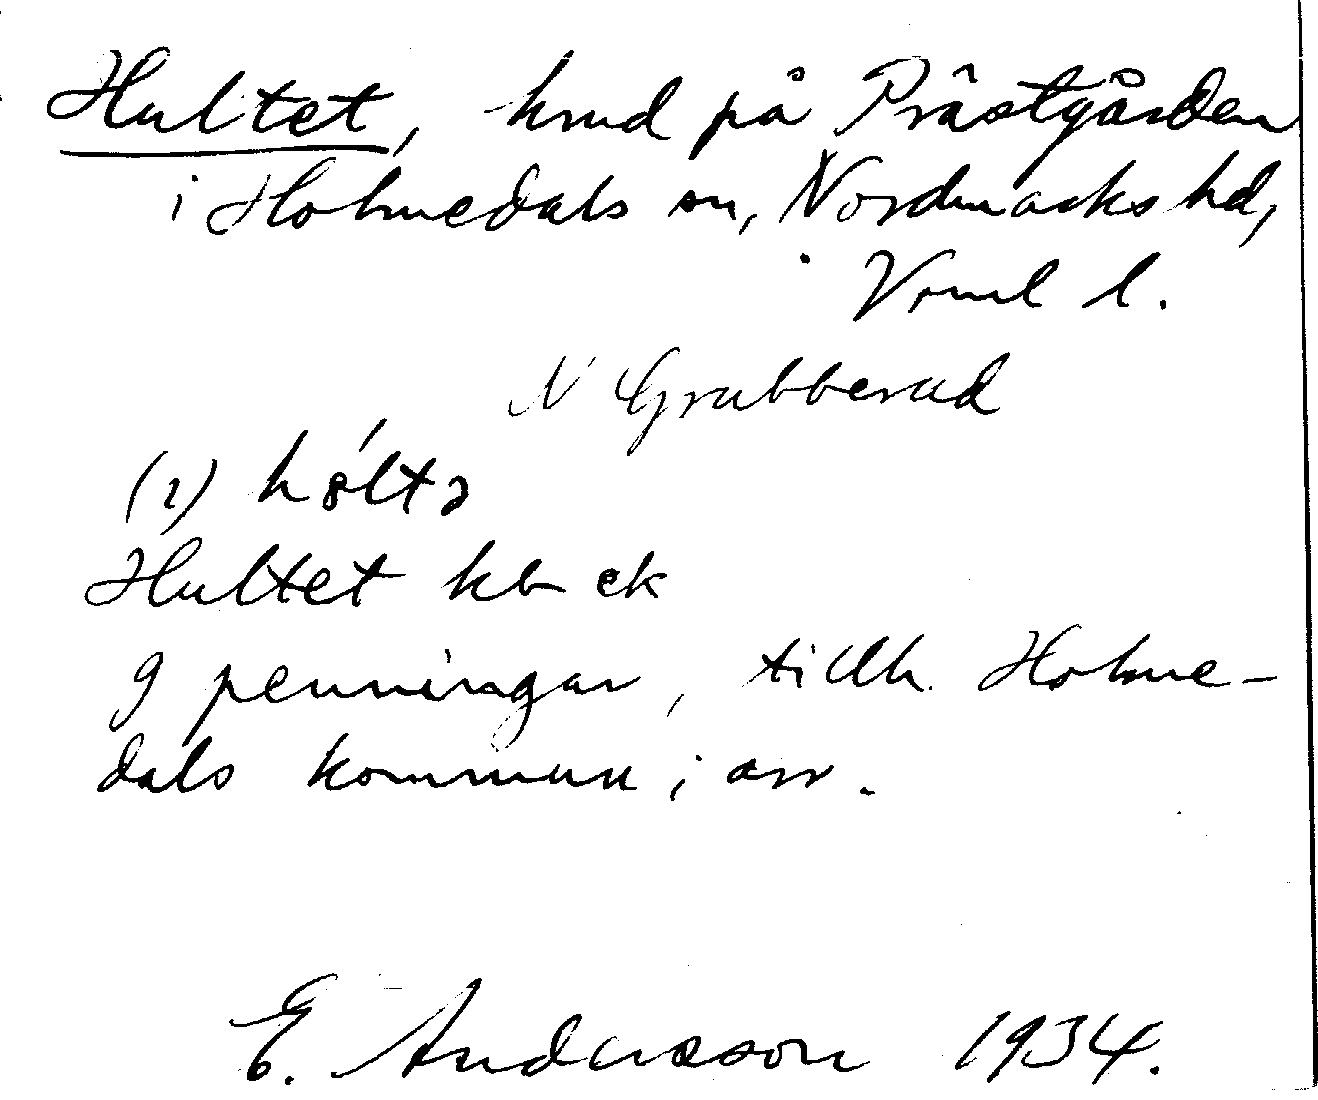 Hultet, hmd på Prästgården
i Holmedals sn, Nordmarks hd,
Vrml l.
N Grubberud
(1) hólta
Hultet kb ek
9 penningar, tillh. Holme-
dals kommun; arr.
E. Andersson 1934.